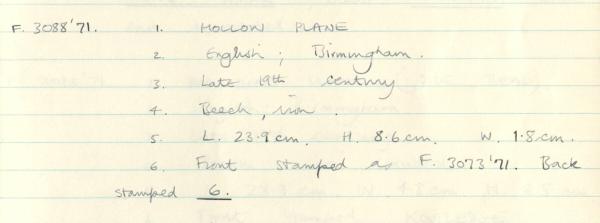 F. 3088'71. 1. HOLLOW PLANE
2. English ; Birmingham.
3. Late 19th century
4. Beech, iron.
5. L. 23.9 cm. H. 8.6 cm. W. 1.8 cm.
6. Front stamped as F. 3073'71. Back
stamped 6.